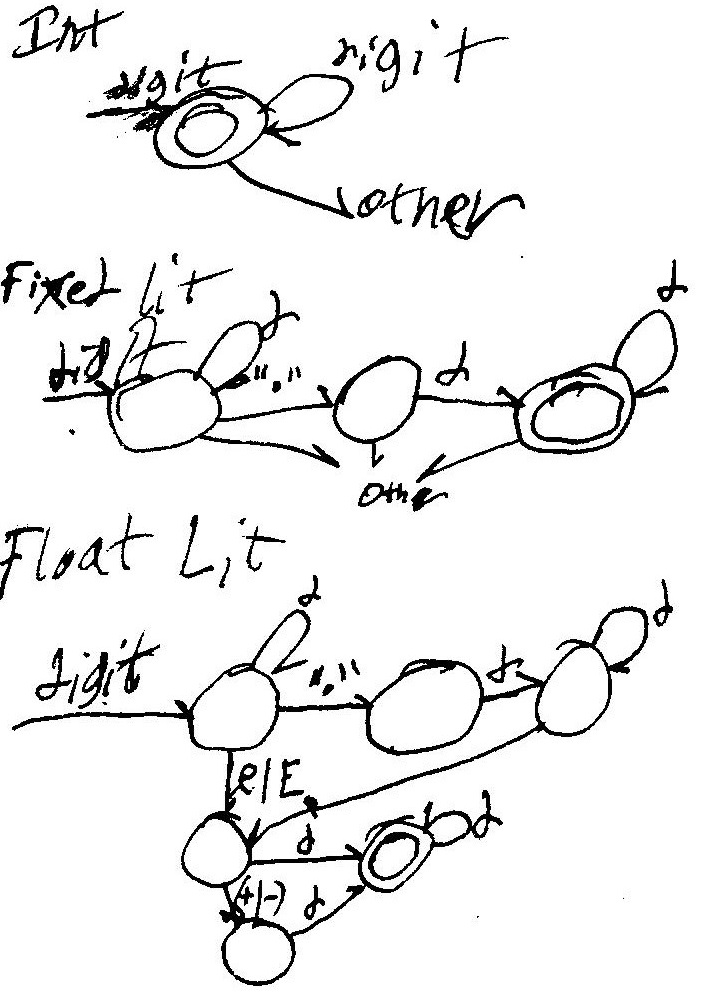 Int
digit digit
other
Fixed Lit
digit d
"." d d
other
Float Lit
d d
digit "." d
e/E
d d
(+/-) d